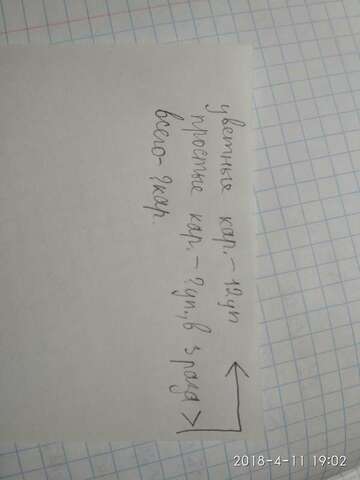 цветные кар. – 12уп
простые кар. – ? уп., в 3 раза >
всего - ? кар.
2018-4-11 19:02